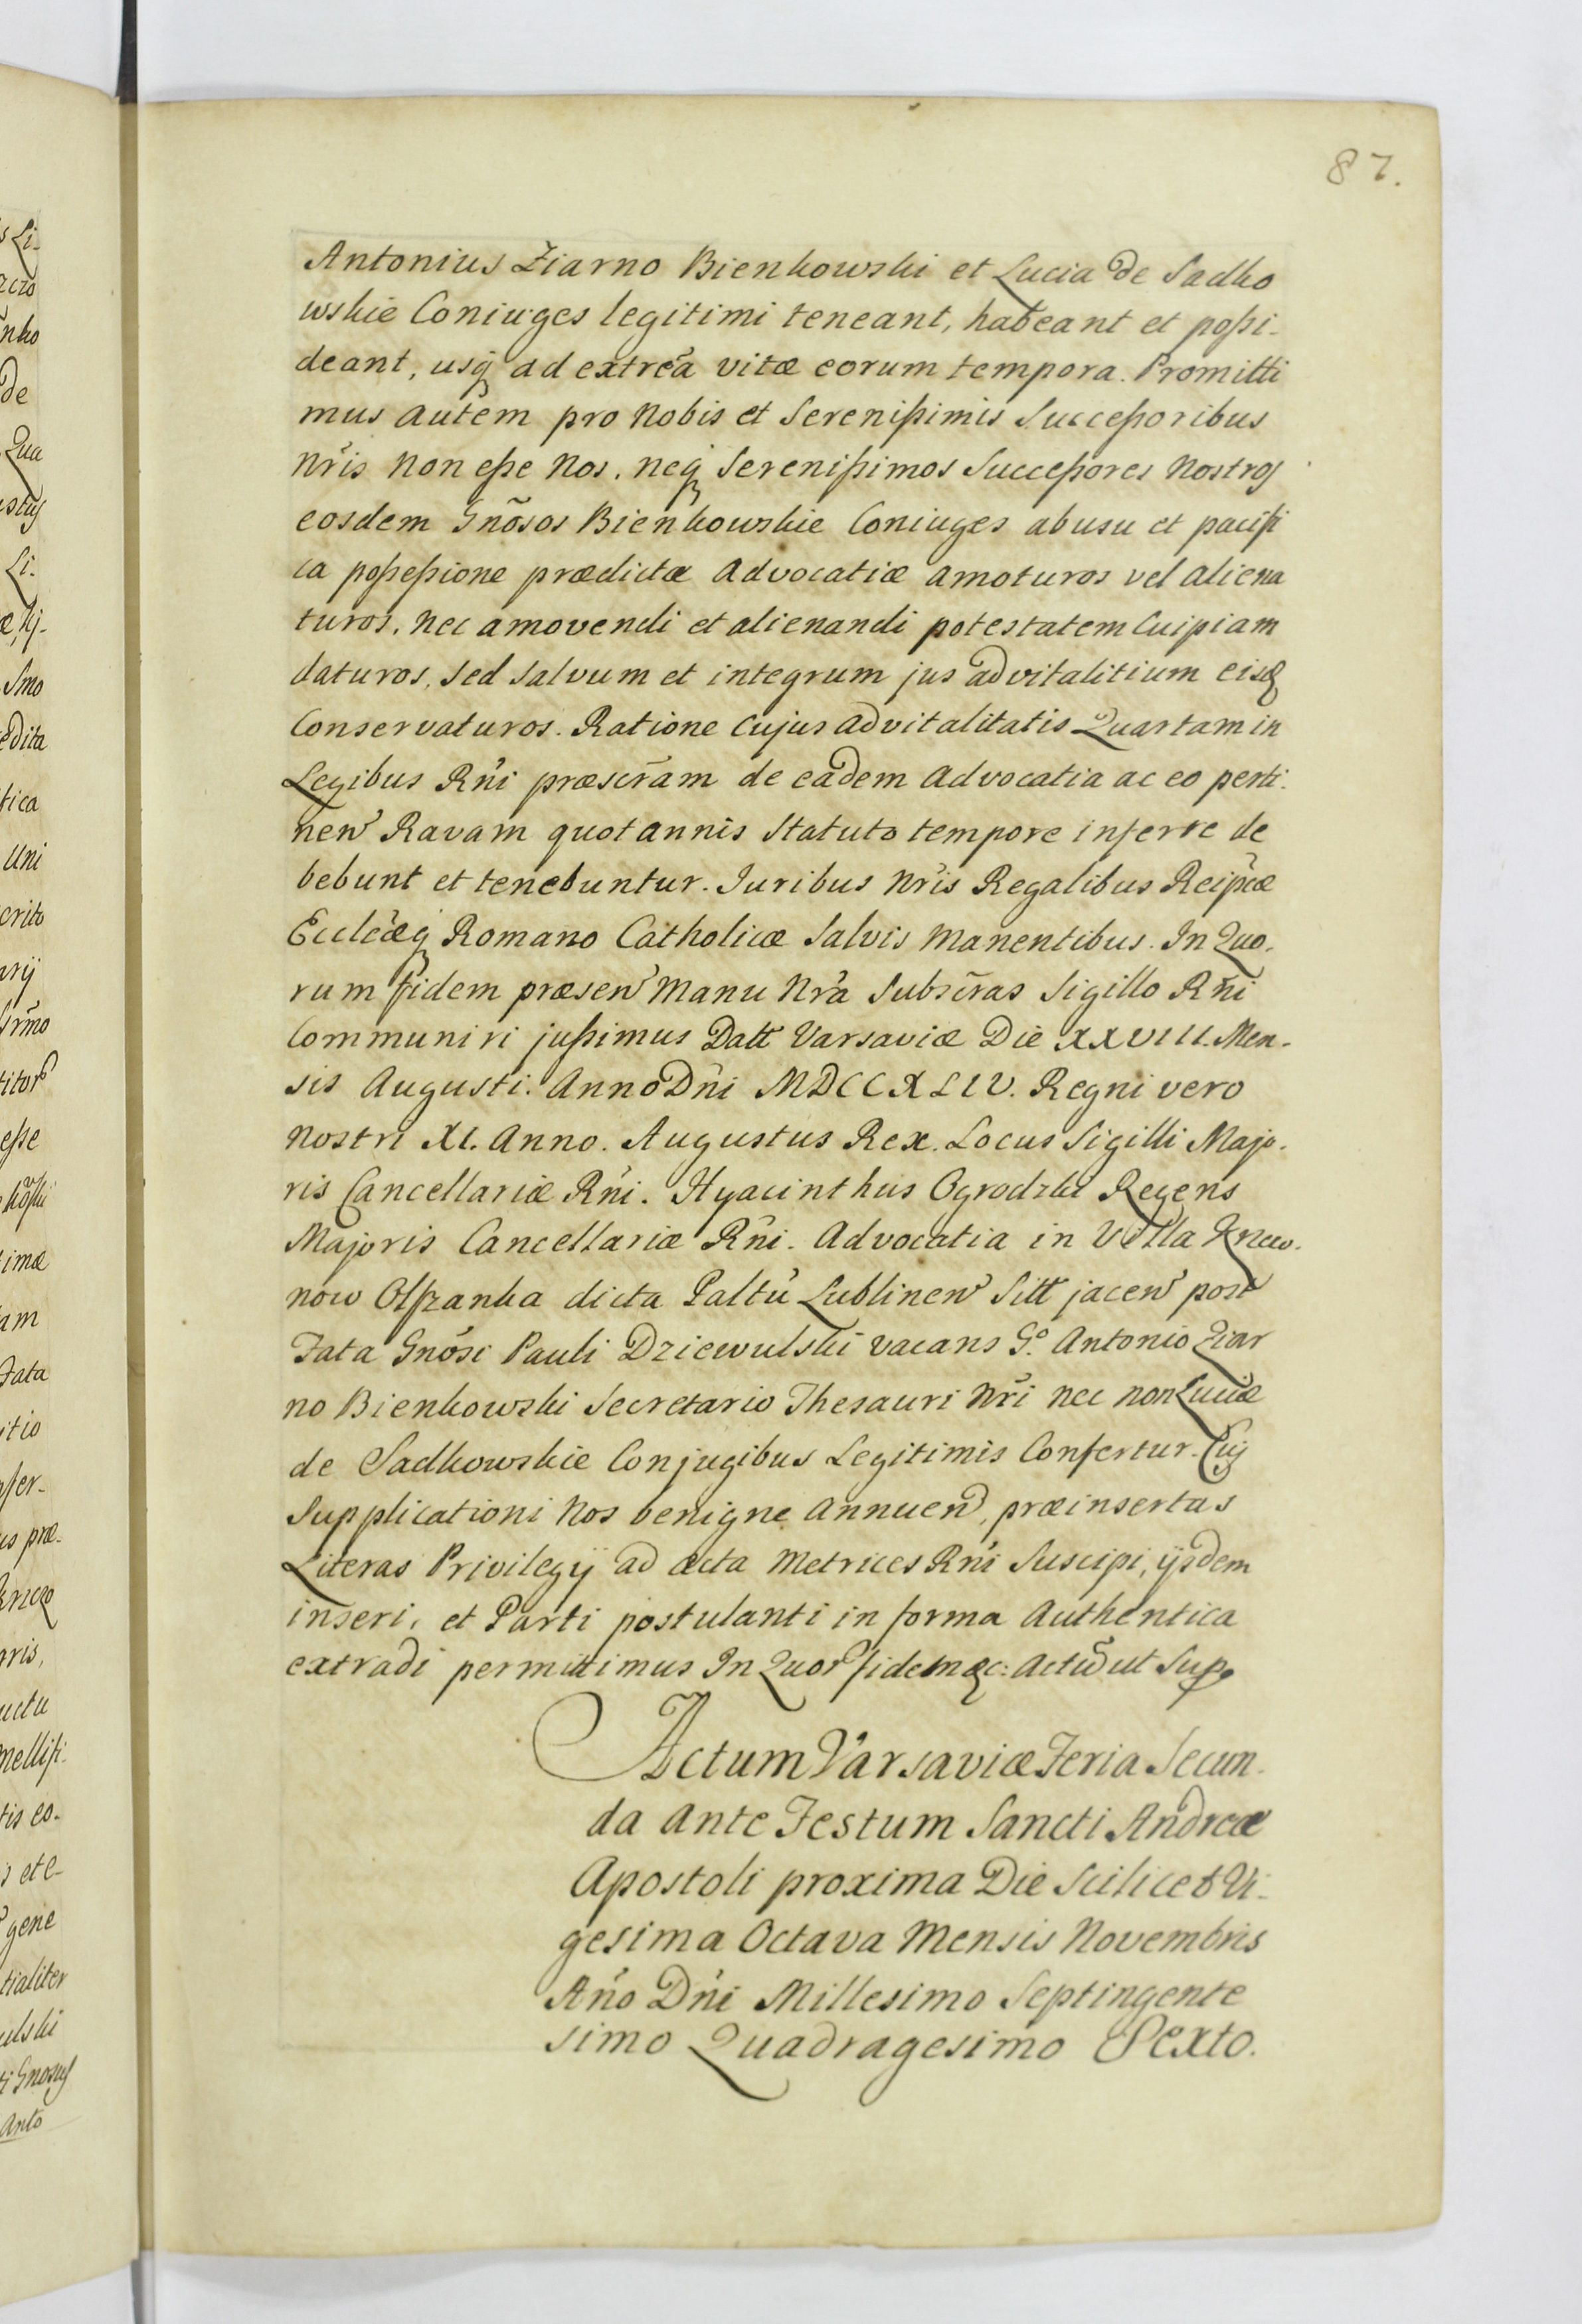 87.
Antonius Ziarno Bienkowski et Lucia de Sadko
wskie Coniuges legitimi teneant, habeant et poßi-
deant, usq̷ ad extrea vitæ eorum tempora. Promitti
mus autem pro Nobis et Serenißimis Succeßoribus
Nris Non eße Nos, neq̷ Serenißimos Succeßores Nostros
eosdem Gnõsos Bienkowskie Coniuges ab usu et pacifi
ca poßeßione prædictæ Advocatiæ amoturos vel aliena
turos, nec amovendi et alienandi potestatem Cuipiam
daturos, sed salvum et integrum jus advitalitium eisd
Conservaturos. Ratione cujus advitalitatis Quartam in
Legibus Rñi præscr̃am de eadem Advocatia ac eo perti-
nen Ravam quotannis statuto tempore inferre de
bebunt et tenebuntur. Iuribus Nris Regalibus Reipcæ
Ecclææq̷ Romano Catholicæ Salvis Manentibus. In Quo-
rum fidem præsen Manu Nra Subscr̃as Sigillo Rñi
Communiri jußimus Datt Varsaviæ Die XXVIII. Men-
sis Augusti. Anno Dñi MDCCXLIV. Regni vero
Nostri XI. Anno. Augustus Rex. Locus Sigilli Majo-
ris Cancellariæ Rñi. Hyacinthus Ogrodzki Regens
Majoris Cancellariæ Rñi. Advocatia in Villa
now Olszanka dicta Paltu Lublinen Sitt jacen post
Fata Gnõsi Pauli Dziewulski vacans G.o Antonio Ziar
no Bienkowski Secretario Thesauri Nri nec non Luciæ
de Sadkowskie Conjugibus Legitimis Confertur. Cuj
Supplicationi Nos benigne Annuen, præinsertas
Literas Privilegij ad acta Metrices Rñi Suscipi, ijsdem
inseri, et Parti postulanti in forma Authentica
extradi permittimus In Quor fidem &c: Actu ut Sup.
Actum Varsaviæ Feria Secun-
da ante Festum Sancti Andreæ
Apostoli proxima Die Scilicet Vi-
gesima Octava Mensis Novembris
Año Dñi Millesimo Septingente
simo Quadragesimo Sexto.